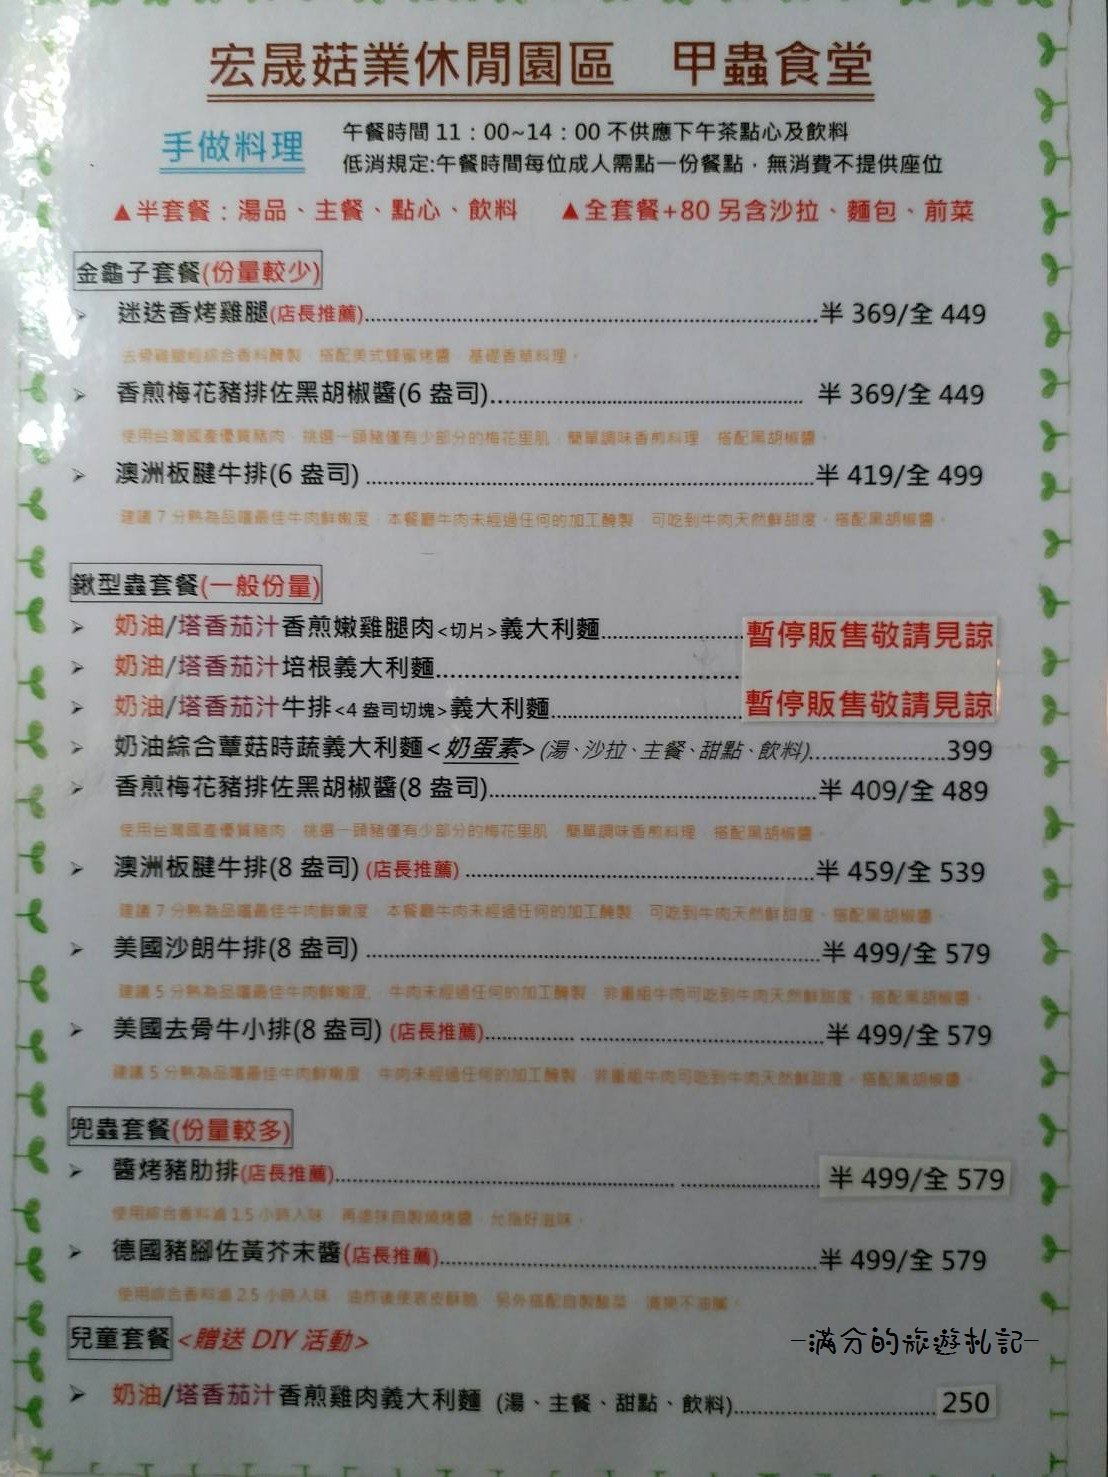 宏晟菇業休閒園區 甲蟲食堂
手做料理
午餐時間 11：00~14：00 不供應下午茶點心及飲料
低消規定:午餐時間每位成人需點一份餐點，無消費不提供座位
▲半套餐：湯品、主餐、點心、飲料 ▲全套餐+80 另含沙拉、麵包、前菜
金龜子套餐(份量較少)
➢ 迷迭香烤雞腿(店長推薦)......半 369/全 449
去骨雞腿經綜合香料醃製，搭配美式蜂蜜烤醬，基礎香草料理。
➢ 香煎梅花豬排佐黑胡椒醬(6 盎司)......半 369/全 449
使用台灣國產優質豬肉，挑選一頭豬僅有少部分的梅花里肌，簡單調味香煎料理，搭配黑胡椒醬。
➢ 澳洲板腱牛排(6 盎司)......半 419/全 499
建議 7 分熟為品嚐最佳牛肉鮮嫩度，本餐廳牛肉未經過任何的加工醃製，可吃到牛肉天然鮮甜度。搭配黑胡椒醬。
鍬型蟲套餐(一般份量)
➢ 奶油/塔香茄汁香煎嫩雞腿肉<切片>義大利麵......暫停販售敬請見諒
➢ 奶油/塔香茄汁培根義大利麵......
➢ 奶油/塔香茄汁牛排<4 盎司切塊>義大利麵......暫停販售敬請見諒
➢ 奶油綜合蕈菇時蔬義大利麵<奶蛋素>(湯、沙拉、主餐、甜點、飲料)......399
➢ 香煎梅花豬排佐黑胡椒醬(8 盎司)......半 409/全 489
使用台灣國產優質豬肉，挑選一頭豬僅有少部分的梅花里肌，簡單調味香煎料理，搭配黑胡椒醬。
➢ 澳洲板腱牛排(8 盎司) (店長推薦)......半 459/全 539
建議 7 分熟為品嚐最佳牛肉鮮嫩度，本餐廳牛肉未經過任何的加工醃製，可吃到牛肉天然鮮甜度。搭配黑胡椒醬。
➢ 美國沙朗牛排(8 盎司)......半 499/全 579
建議 5 分熟為品嚐最佳牛肉鮮嫩度，牛肉未經過任何的加工醃製，非重組牛肉可吃到牛肉天然鮮甜度，搭配黑胡椒醬。
➢ 美國去骨牛小排(8 盎司) (店長推薦)......半 499/全 579
建議 5 分熟為品嚐最佳牛肉鮮嫩度，牛肉未經過任何的加工醃製，非重組牛肉可吃到牛肉天然鮮甜度。搭配黑胡椒醬。
兜蟲套餐(份量較多)
➢ 醬烤豬肋排(店長推薦)......半 499/全 579
使用綜合香料滷 1.5 小時入味，再塗抹自製燒烤醬，允指好滋味。
➢ 德國豬腳佐黃芥末醬(店長推薦)......半 499/全 579
使用綜合香料滷 2.5 小時入味，油炸後使表皮酥脆，另外搭配自製酸菜，清爽不油膩。
兒童套餐<贈送 DIY 活動>
➢ 奶油/塔香茄汁香煎雞肉義大利麵 (湯、主餐、甜點、飲料)......250
-滿分的旅遊札記-